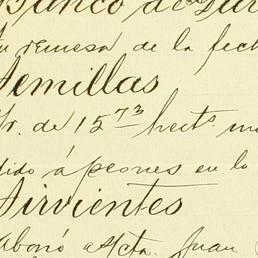 Banco de
su remesa de la fech
Semillas
Pr. de 15 73 hects. m
dido á peones en lo
Sirvientes
abonó a Mcta. Juan